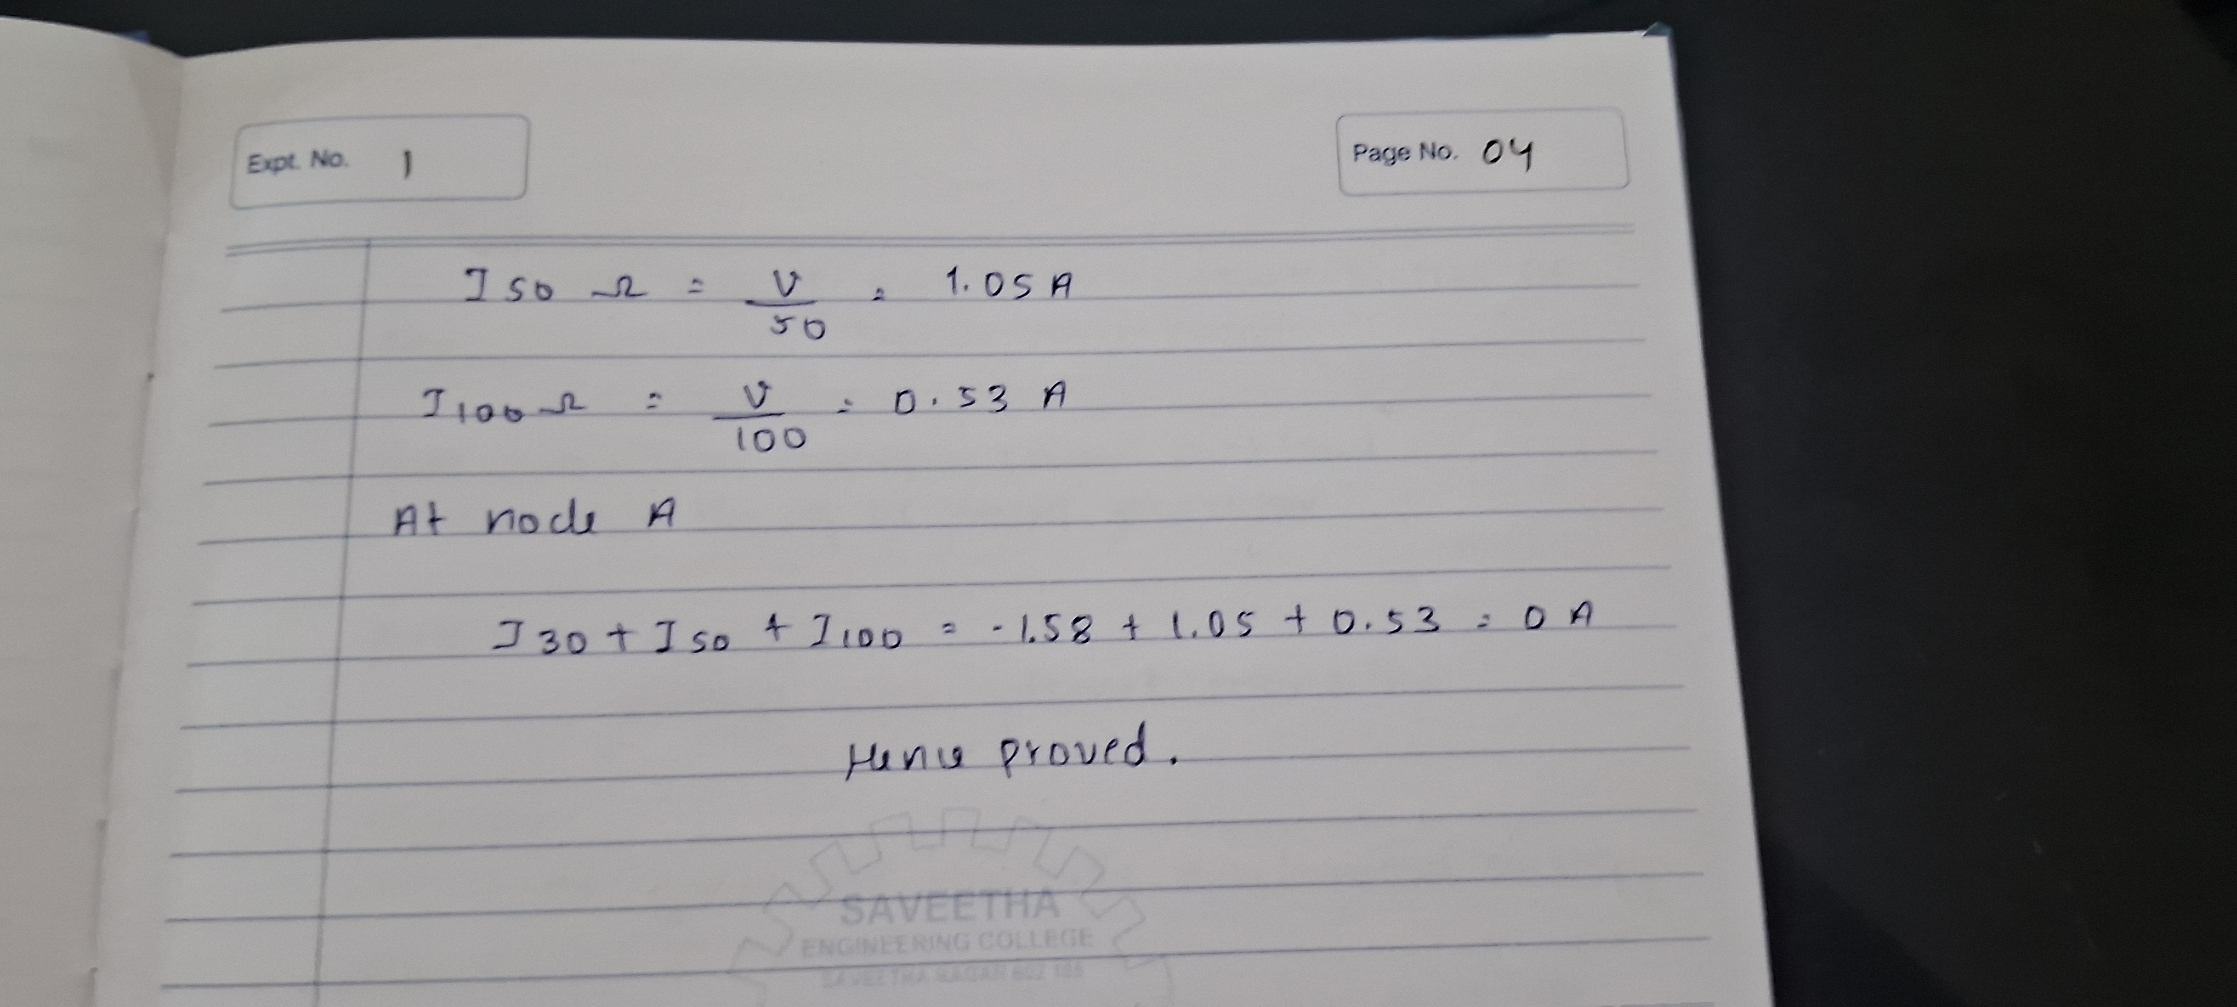 Expt. No. 1 Page No. 04
I 50 Ω = V/50 = 1.05 A
I 100 Ω = V/100 = 0.53 A
At node A
I 30 + I 50 + I 100 = -1.58 + 1.05 + 0.53 = 0 A
Hence proved.
SAVEETHA
ENGINEERING COLLEGE
SAVEETHA NAGAR 602 105